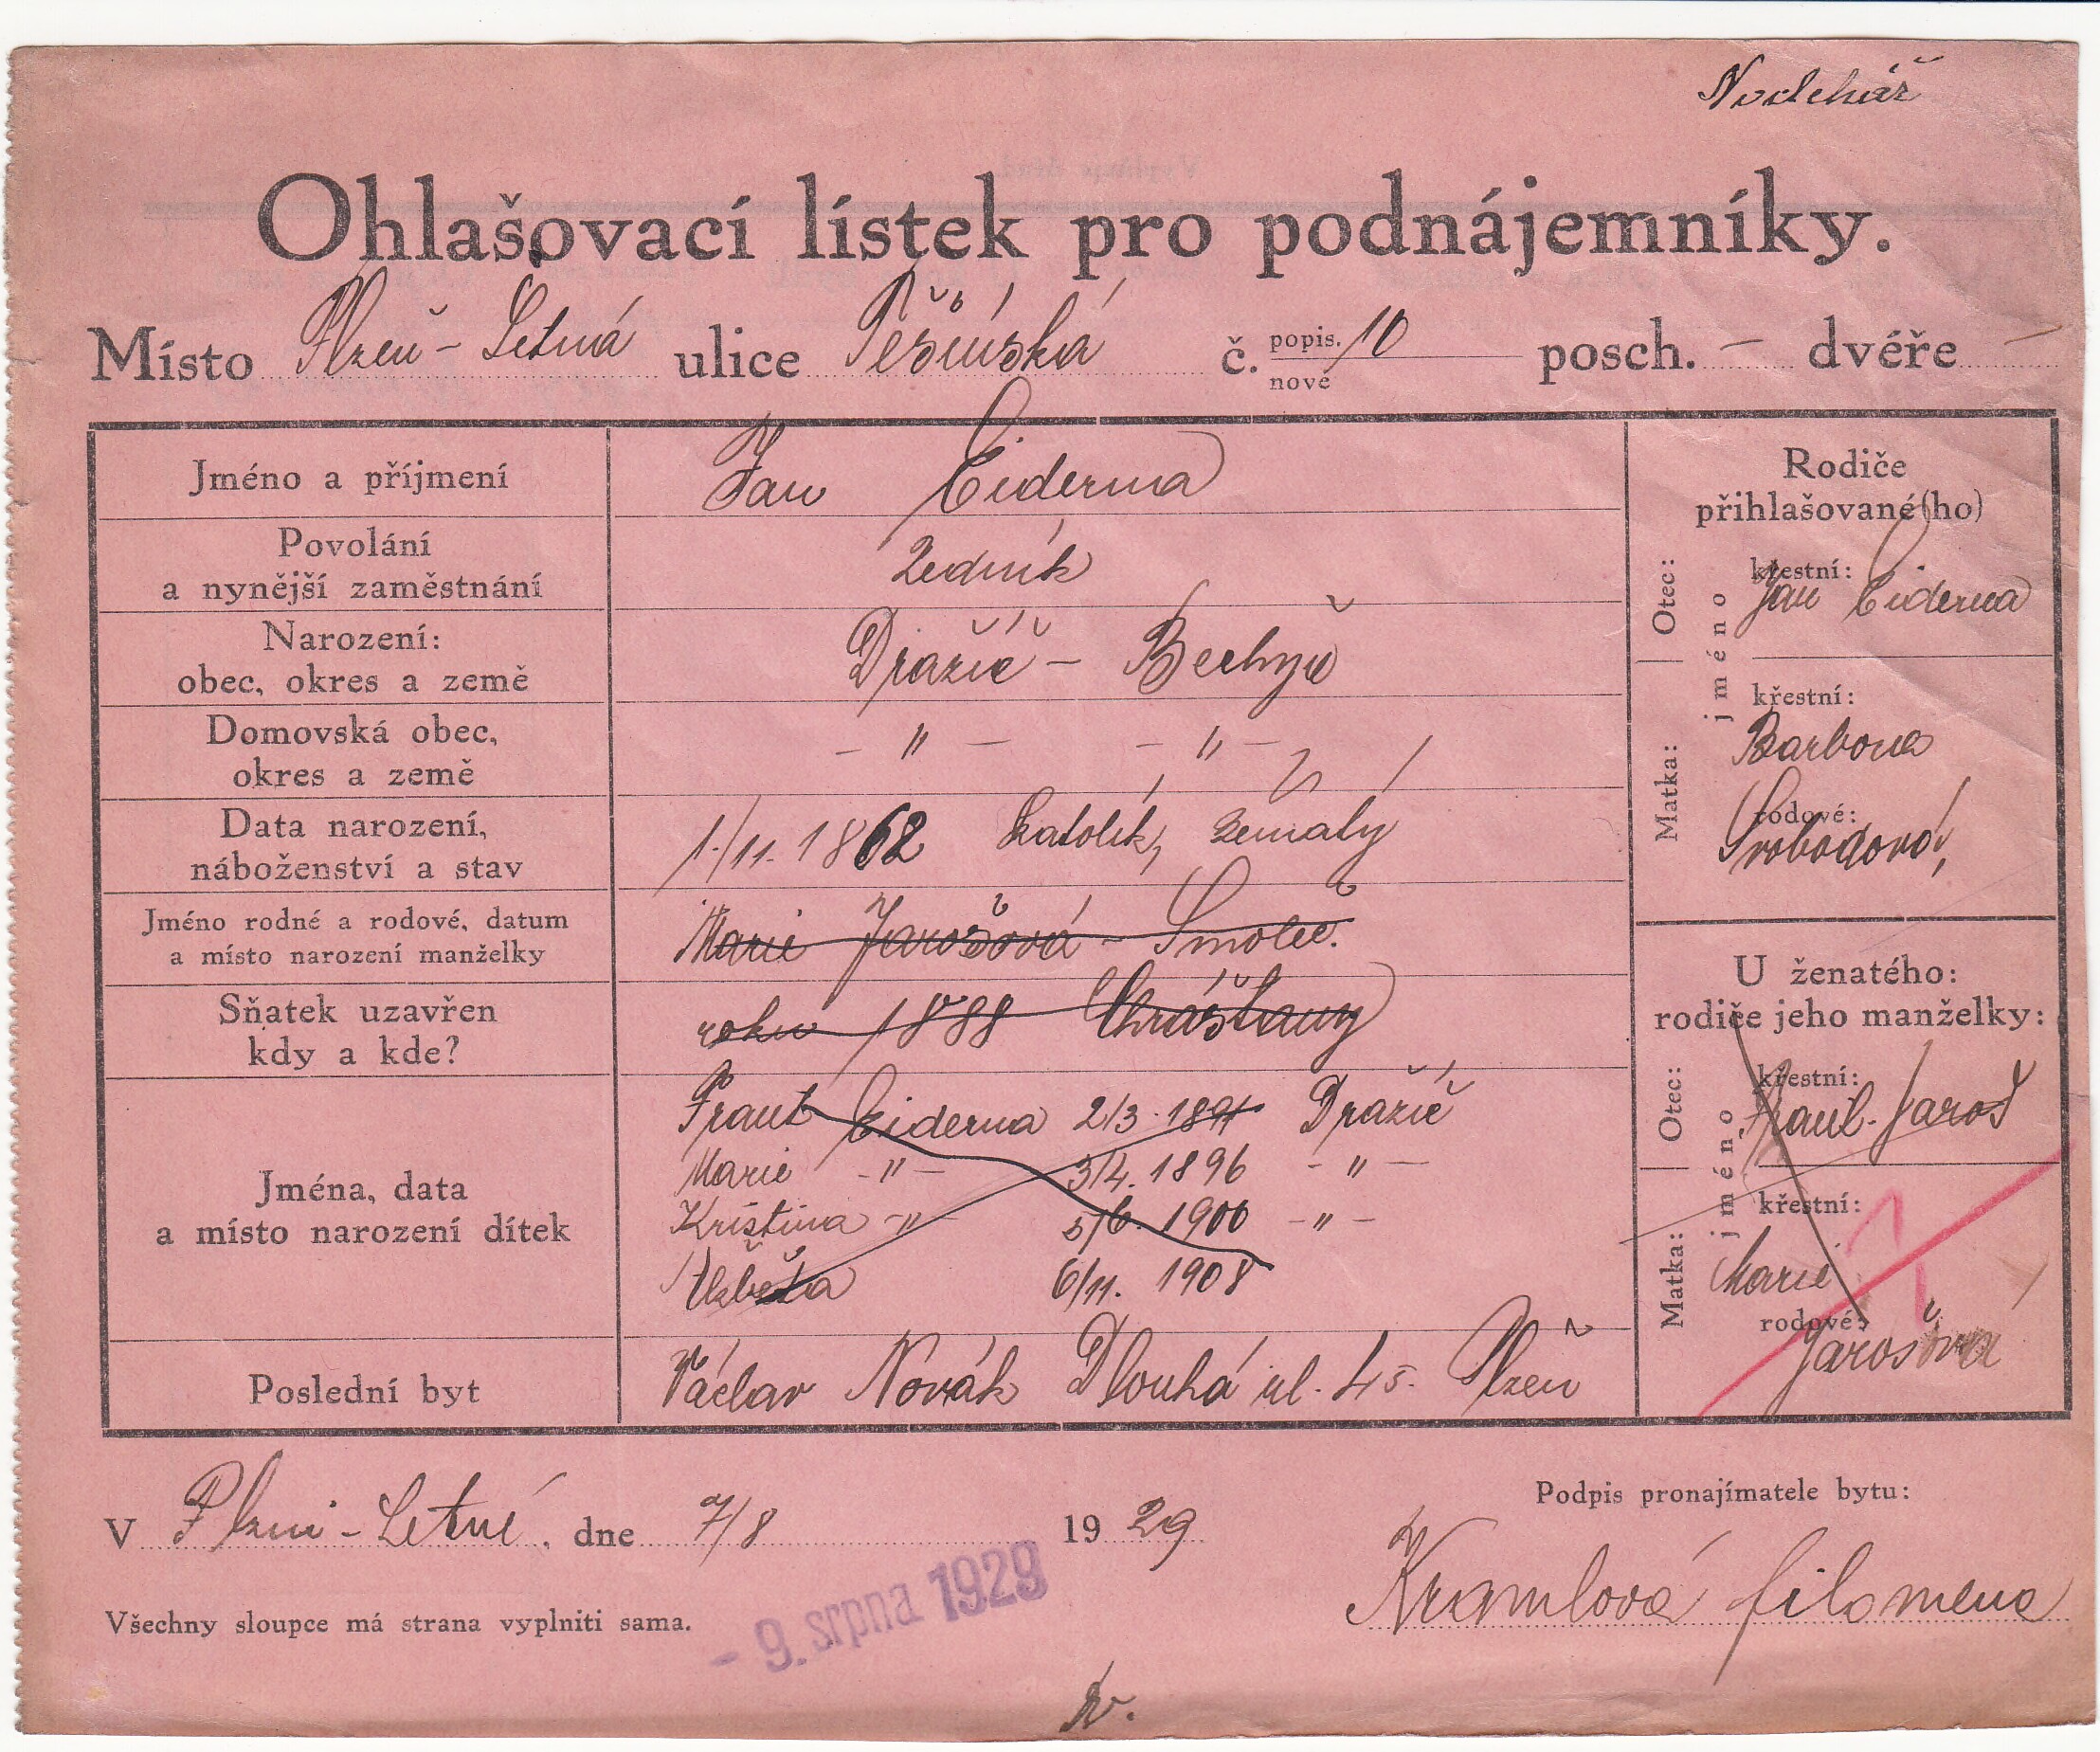 Ohlašovací lístek pro podnájemníky.
Místo Plzeň - Letná ulice Těšínská č. popis. nové 10 posch. — dvéře —
Jméno a příjmení Jan Ciderma
Povolání
a nynější zaměstnání Zedník
Narození:
obec, okres a země Dražíč - Bechyň
Domovská obec,
okres a země - " - - " -
Data narození,
náboženství a stav 1./11. 1862 katolík, ženatý
Jméno rodné a rodové, datum
a místo narození manželky Marie Jarošová - Smoleč.
Sňatek uzavřen
kdy a kde? roku 1888 Chrášťany
Jména, data
a místo narození dítek
Frant Ciderma 2/3. 1891 Dražíč
Marie - " - 3/4. 1896 - " -
Kristina - " - 5/6. 1900 - " -
Alžběta 6/11. 1908
Poslední byt Václav Novák Dlouhá ul. 45. Plzeň
Rodiče
přihlašované(ho)
Otec:
jméno
křestní:
Jan Ciderma
Matka:
křestní:
Barbora
rodové:
Svobodová,
U ženatého:
rodiče jeho manželky:
Otec:
jméno
křestní:
Jaroš
Matka:
křestní:
Marie
rodové:
Jarošová
V Plzni - Letné, dne 7/8 1929
Podpis pronajímatele bytu:
Kramlová filomena
Všechny sloupce má strana vyplniti sama.
- 9. srpna 1929